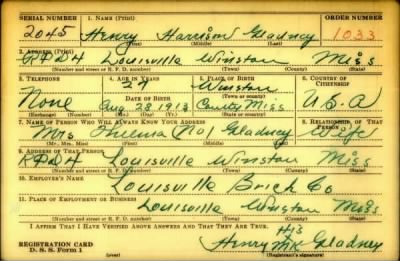 SERIAL NUMBER 1. NAME (Print) ORDER NUMBER
2045 Henry Harrison Gladney 1033
(First) (Middle) (Last)
2. ADDRESS (Print)
RFD4 Louisville Winston Miss
(Number and street or R. F. D. number) (Town) (County) (State)
3. TELEPHONE 4. AGE IN YEARS 5. PLACE OF BIRTH 6. COUNTRY OF CITIZENSHIP
27 Winston
None DATE OF BIRTH
Aug 28 1913 County Miss U.S.A
(Exchange) (Number) (Mo.) (Day) (Yr.) (Town or county) (State or country)
7. NAME OF PERSON WHO WILL ALWAYS KNOW YOUR ADDRESS 8. RELATIONSHIP OF THAT PERSON
Mrs Thelma (No) Gladney Wife
(Mr., Mrs., Miss) (First) (Middle) (Last)
9. ADDRESS OF THAT PERSON
RFD4 Louisville Winston Miss
(Number and street or R. F. D. number) (Town) (County) (State)
10. EMPLOYER'S NAME
Louisville Brick Co
11. PLACE OF EMPLOYMENT OR BUSINESS
Louisville Winston Miss
(Number and street or R. F. D. number) (Town) (County) (State)
I AFFIRM THAT I HAVE VERIFIED ABOVE ANSWERS AND THAT THEY ARE TRUE.
His
REGISTRATION CARD Henry MK Gladney
D. S. S. Form 1 (over) (Registrant's signature)